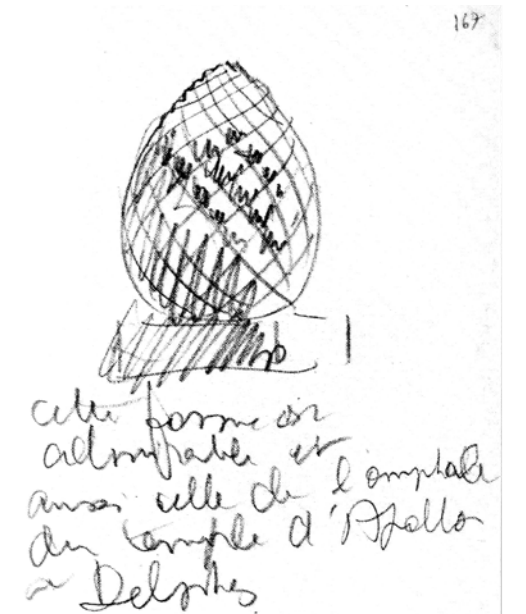 167
cette forme est
admirable et
aussi celle de l'omphale
du temple d'Apollo
a Delphes